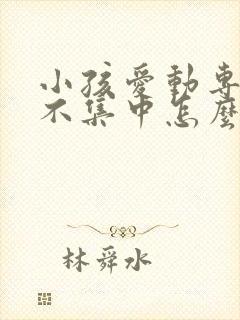 小孩愛動專
不集中怎麼
林舜水